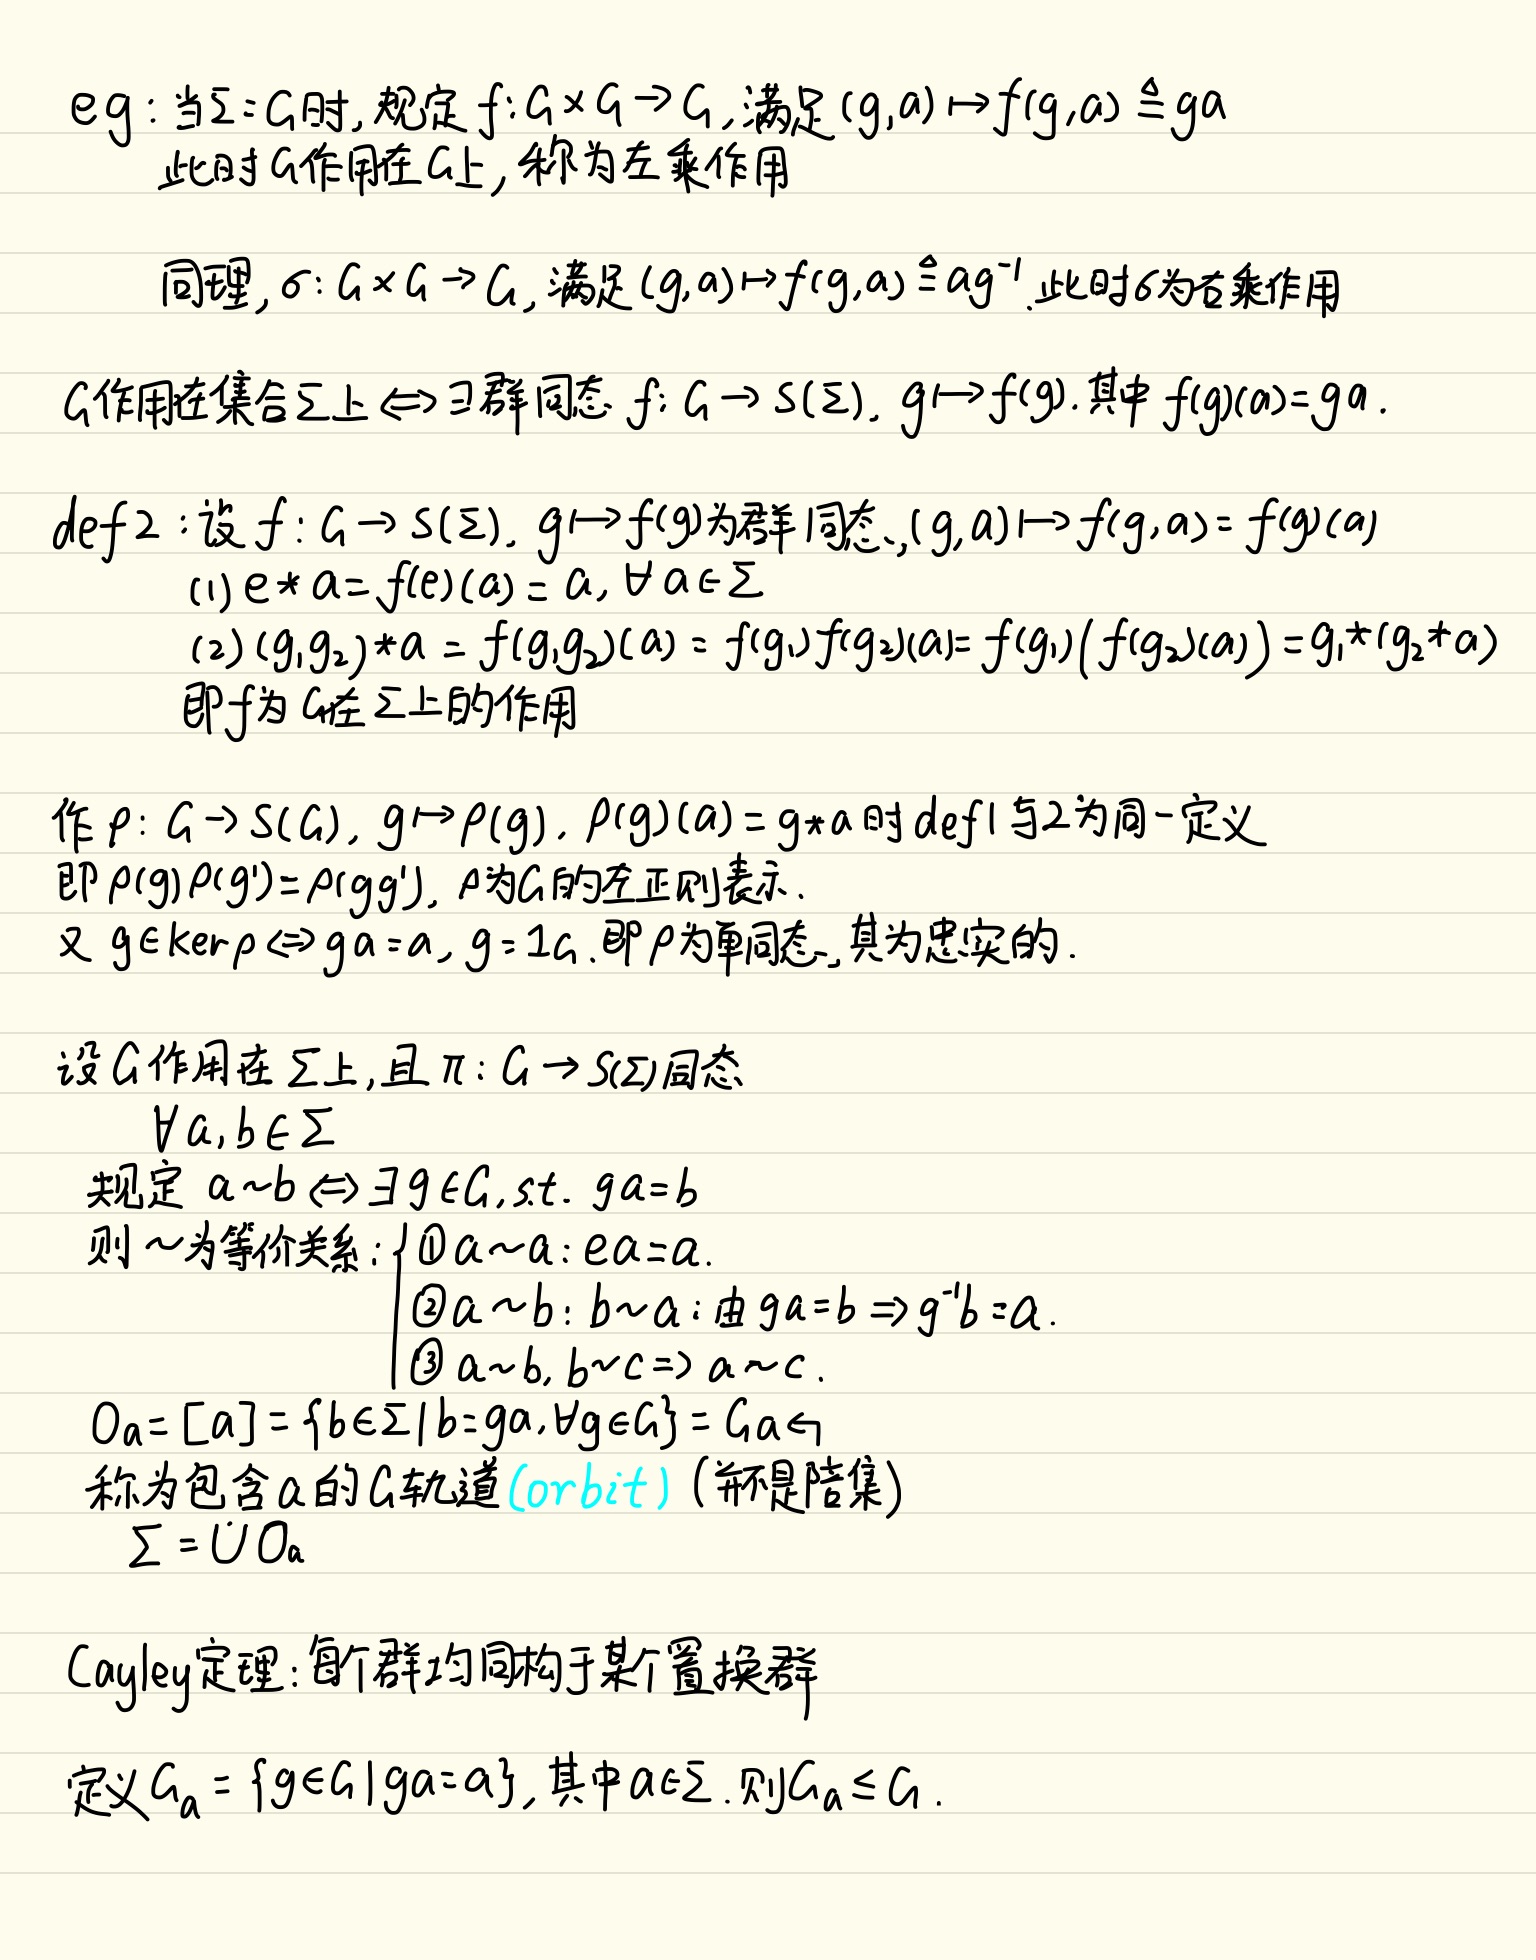 eg：当Σ=G时，规定 f：G×G→G，满足(g,a)↦f(g,a)≜ga
此时G作用在G上，称为左乘作用
同理，σ：G×G→G，满足(g,a)↦f(g,a)≜ag⁻¹.此时σ为右乘作用
G作用在集合Σ上⇔∃群同态 f：G→S(Σ)，g↦f(g).其中 f(g)(a)=ga.
def 2：设 f：G→S(Σ)，g↦f(g)为群同态，(g,a)↦f(g,a)=f(g)(a)
(1) e*a=f(e)(a)=a, ∀a∈Σ
(2) (g₁g₂)*a=f(g₁g₂)(a)=f(g₁)f(g₂)(a)=f(g₁)(f(g₂)(a))=g₁*(g₂*a)
即f为G在Σ上的作用
作ρ：G→S(G)，g↦ρ(g)，ρ(g)(a)=g*a时def1与2为同一定义
即ρ(g)ρ(g')=ρ(gg')，ρ为G的左正则表示.
又 g∈kerρ⇔ga=a, g=1G.即ρ为单同态，其为忠实的.
设G作用在Σ上，且π：G→S(Σ)同态
∀a,b∈Σ
规定 a~b⇔∃g∈G, s.t. ga=b
则~为等价关系：{①a~a：ea=a.
②a~b：b~a：由ga=b⇒g⁻¹b=a.
③a~b, b~c⇒a~c.
Oa=[a]={b∈Σ|b=ga,∀g∈G}=Ga↰
称为包含a的G轨道(orbit)(并不是陪集)
Σ=⨃Oa
Cayley定理：每个群均同构于某个置换群
定义Ga={g∈G|ga=a}，其中a∈Σ.则Ga≤G.